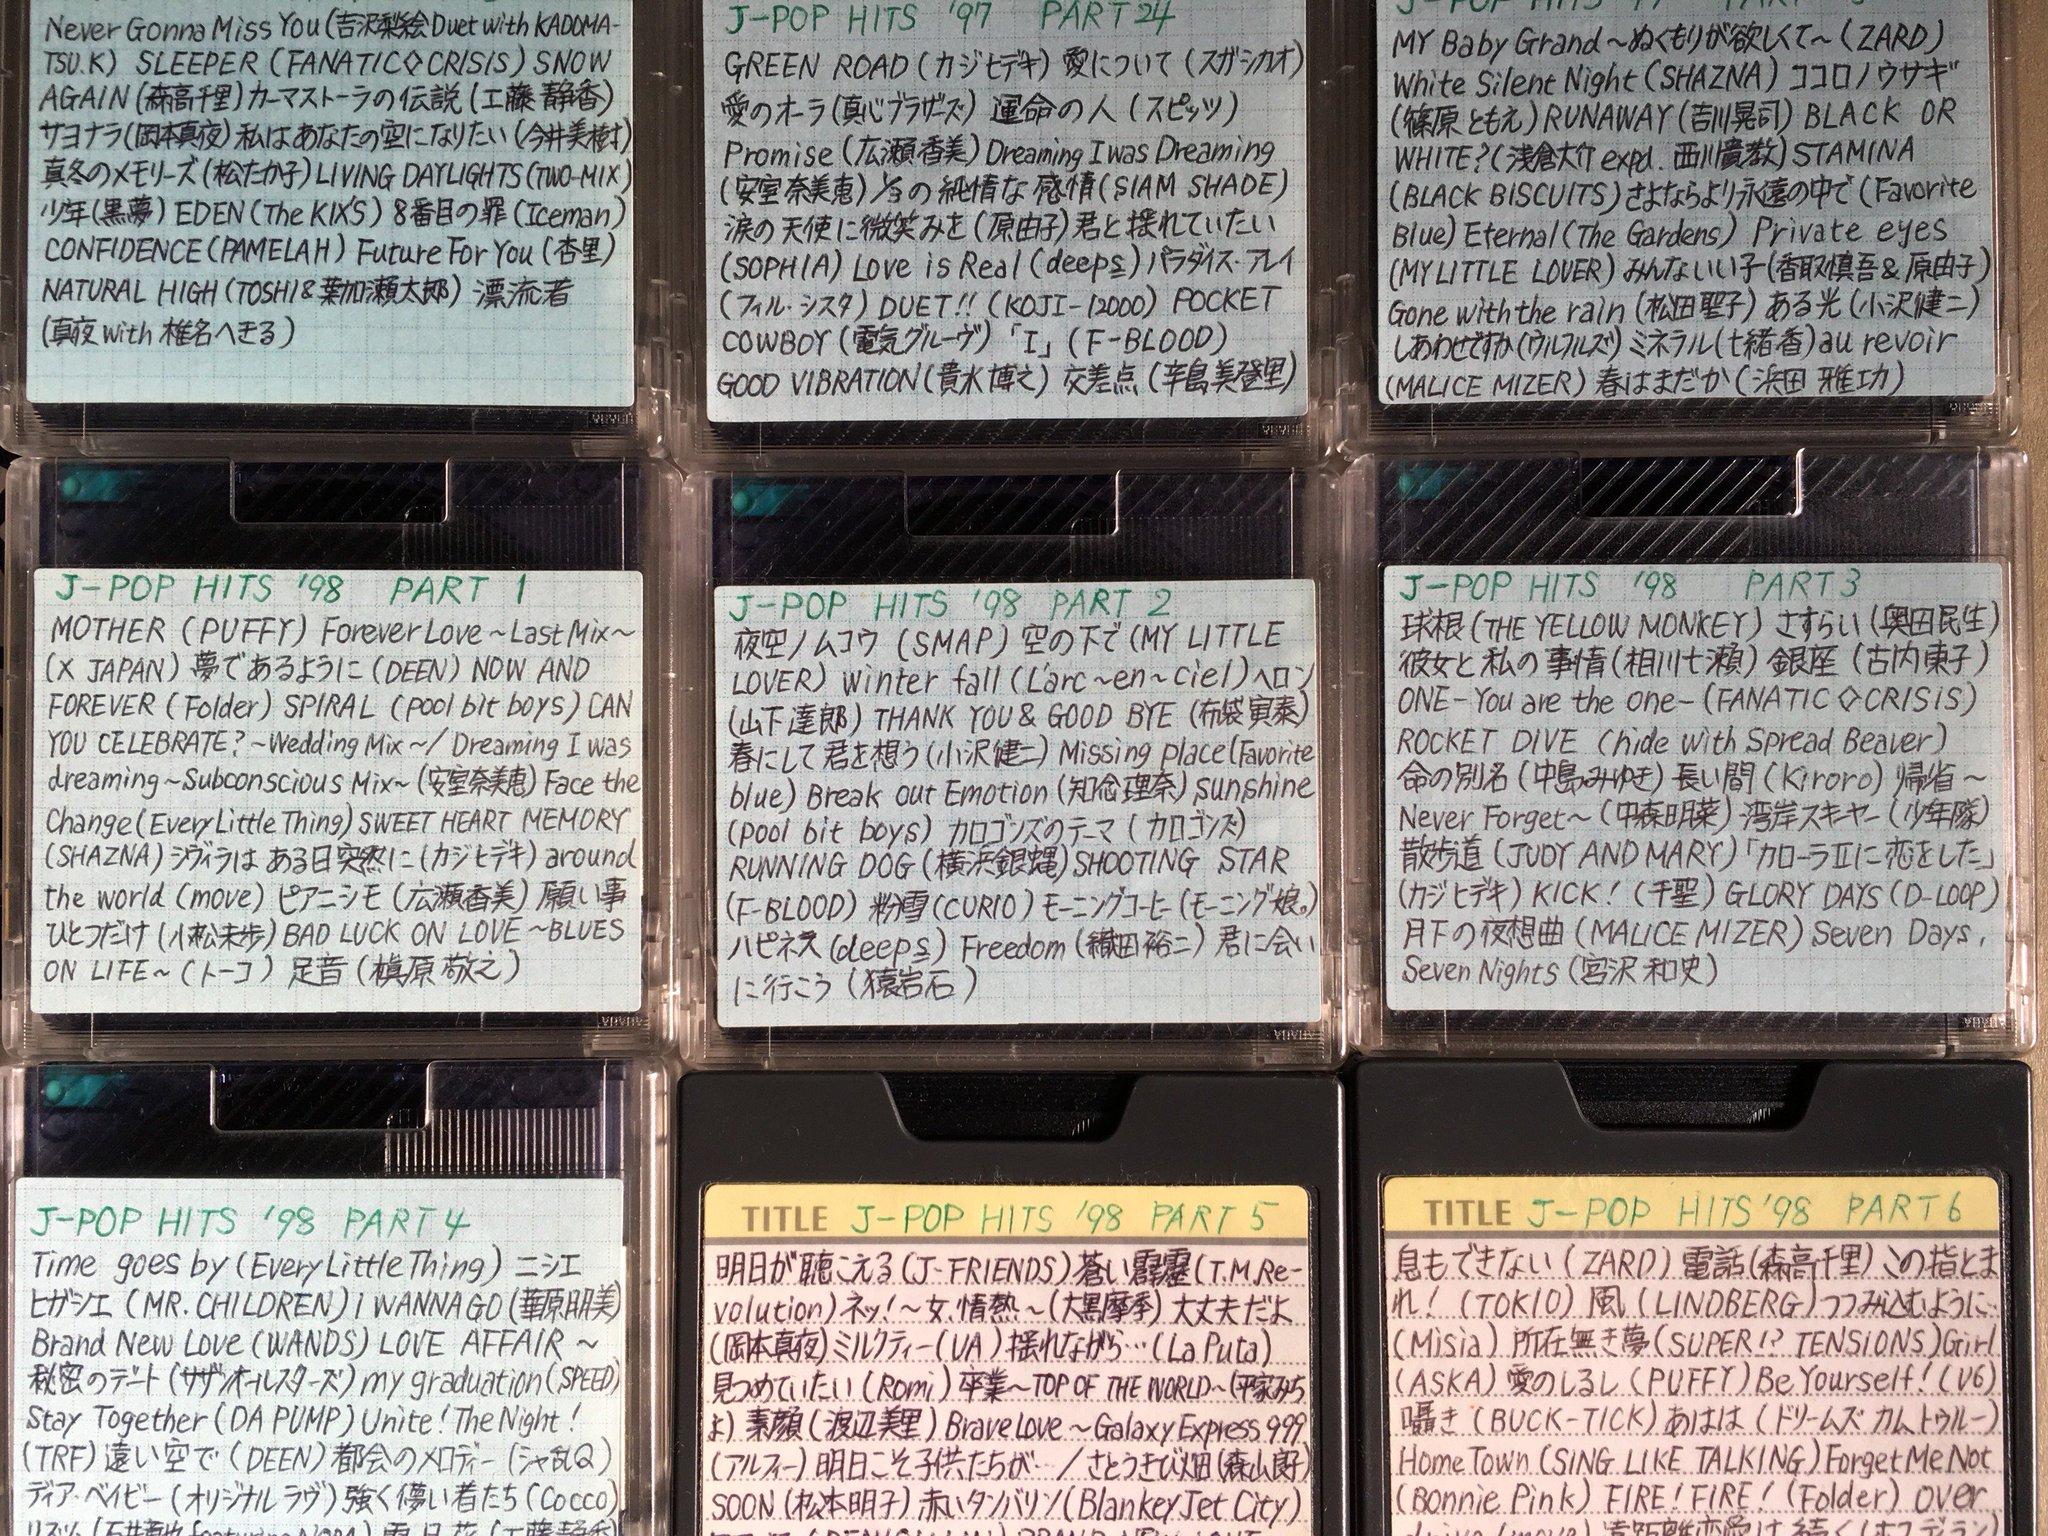 Never Gonna Miss You (吉沢梨絵 Duet with KADOMA-
TSU.K) SLEEPER (FANATIC◇CRISIS) SNOW
AGAIN (森高千里) カーマストーラの伝説 (工藤静香)
サヨナラ (岡本真夜) 私はあなたの空になりたい (今井美樹)
真冬のメモリーズ (松たか子) LIVING DAYLIGHTS (TWO-MIX)
少年 (黒夢) EDEN (The KIX'S) 8番目の罪 (Iceman)
CONFIDENCE (PAMELAH) Future For You (杏里)
NATURAL HIGH (TOSHI & 葉加瀬太郎) 漂流者
(真夜 with 椎名へきる)
J-POP HITS '97 PART 24
GREEN ROAD (カジヒデキ) 愛について (スガシカオ)
愛のオーラ (真心ブラザーズ) 運命の人 (スピッツ)
Promise (広瀬香美) Dreaming I was Dreaming
(安室奈美恵) 1/3の純情な感情 (SIAM SHADE)
涙の天使に微笑みを (原由子) 君と揺れていたい
(SOPHIA) Love is Real (deeps) パラダイス・アレイ
(フィル・シスタ) DUET!! (KOJI-12000) POCKET
COWBOY (電気グルーヴ) 「I」 (F-BLOOD)
GOOD VIBRATION (貴水博之) 交差点 (辛島美登里)
MY Baby Grand ～ぬくもりが欲しくて～ (ZARD)
White Silent Night (SHAZNA) ココロノウサギ
(篠原ともえ) RUNAWAY (吉川晃司) BLACK OR
WHITE? (浅倉大介 expd. 西川貴教) STAMINA
(BLACK BISCUITS) さよならより永遠の中で (Favorite
Blue) Eternal (The Gardens) Private eyes
(MY LITTLE LOVER) みんないい子 (香取慎吾 & 原由子)
Gone with the rain (松田聖子) ある光 (小沢健二)
しあわせですか (ウルフルズ) ミネラル (七緒香) au revoir
(MALICE MIZER) 春はまだか (浜田雅功)
J-POP HITS '98 PART 1
MOTHER (PUFFY) Forever Love ～Last Mix～
(X JAPAN) 夢であるように (DEEN) NOW AND
FOREVER (Folder) SPIRAL (pool bit boys) CAN
YOU CELEBRATE? ～Wedding Mix～/ Dreaming I was
dreaming ～Subconscious Mix～ (安室奈美恵) Face the
Change (Every Little Thing) SWEET HEART MEMORY
(SHAZNA) シヴィラはある日突然に (カジヒデキ) around
the world (move) ピアニシモ (広瀬香美) 願い事
ひとつだけ (小松未歩) BAD LUCK ON LOVE ～BLUES
ON LIFE～ (トーコ) 足音 (槇原敬之)
J-POP HITS '98 PART 2
夜空ノムコウ (SMAP) 空の下で (MY LITTLE
LOVER) winter fall (L'arc～en～ciel) ヘロン
(山下達郎) THANK YOU & GOOD BYE (布袋寅泰)
春にして君を想う (小沢健二) Missing place (Favorite
blue) Break out Emotion (知念理奈) sunshine
(pool bit boys) カロゴンズのテーマ (カロゴンズ)
RUNNING DOG (横浜銀蝿) SHOOTING STAR
(F-BLOOD) 粉雪 (CURIO) モーニングコーヒー (モーニング娘。)
ハピネス (deeps) Freedom (織田裕二) 君に会い
に行こう (猿岩石)
J-POP HITS '98 PART 3
球根 (THE YELLOW MONKEY) さすらい (奥田民生)
彼女と私の事情 (相川七瀬) 銀座 (古内東子)
ONE -You are the one- (FANATIC◇CRISIS)
ROCKET DIVE (hide with Spread Beaver)
命の別名 (中島みゆき) 長い間 (Kiroro) 帰省～
Never Forget～ (中森明菜) 湾岸スキーヤー (少年隊)
散歩道 (JUDY AND MARY) 「カローラⅡに恋をした」
(カジヒデキ) KICK! (千聖) GLORY DAYS (D-LOOP)
月下の夜想曲 (MALICE MIZER) Seven Days,
Seven Nights (宮沢和史)
J-POP HITS '98 PART 4
Time goes by (Every Little Thing) ニシエ
ヒガシエ (MR. CHILDREN) i WANNA GO (華原朋美)
Brand New Love (WANDS) LOVE AFFAIR ～
秘密のデート (サザンオールスターズ) my graduation (SPEED)
Stay Together (DA PUMP) Unite! The Night!
(TRF) 遠い空で (DEEN) 都会のメロディー (シャ乱Q)
ディア・ベイビー (オリジナルラヴ) 強く儚い者たち (Cocco)
TITLE J-POP HITS '98 PART 5
明日が聴こえる (J-FRIENDS) 蒼い霹靂 (T.M.Re-
volution) ネッ!～女、情熱～ (大黒摩季) 大丈夫だよ
(岡本真夜) ミルクティー (UA) 揺れながら… (La Puta)
見つめていたい (Romi) 卒業～TOP OF THE WORLD～ (平家みち
よ) 素顔 (渡辺美里) Brave Love ～Galaxy Express 999
(アルフィー) 明日こそ子供たちが…/さとうきび畑 (森山良子)
SOON (松本明子) 赤いタンバリン (Blankey Jet City)
TITLE J-POP HITS '98 PART 6
息もできない (ZARD) 電話 (森高千里) この指とま
れ! (TOKIO) 風 (LINDBERG) つつみ込むように…
(Misia) 所在無き夢 (SUPER!? TENSIONS) Girl
(ASKA) 愛のしるし (PUFFY) Be Yourself! (V6)
囁き (BUCK-TICK) あはは (ドリームズ カム トゥルー)
Home Town (SING LIKE TALKING) Forget Me Not
(Bonnie Pink) FIRE! FIRE! (Folder) over